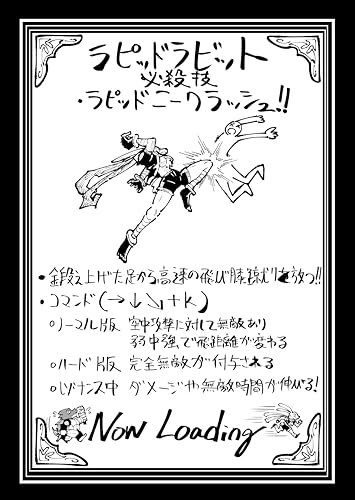 ラピッドラビット
必殺技
・ラピッドニークラッシュ!!
・鍛え上げた足から高速の飛び膝蹴りを放つ!!
・コマンド(→↓↘+K)
○ノーマル版 空中攻撃に対して無敵あり
弱中強で飛距離が変わる
○ハード版 完全無敵が付与される
ダメージや無敵時間が伸びる!
Now Loading